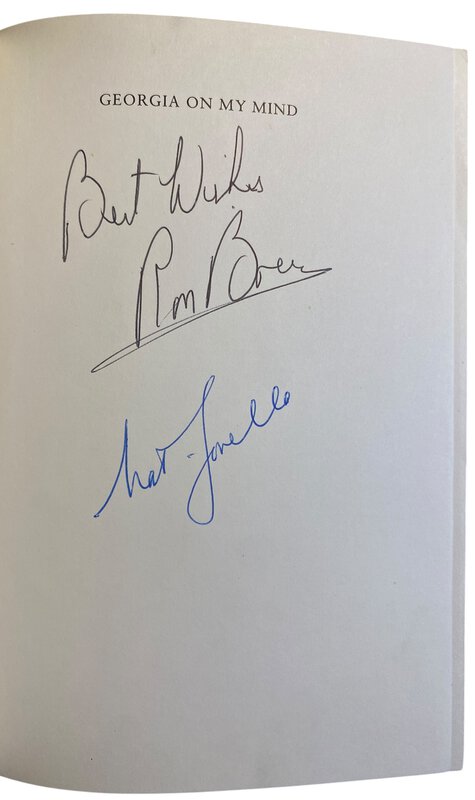 GEORGIA ON MY MIND
Best Wishes
Ron Brown
Nat Gonella